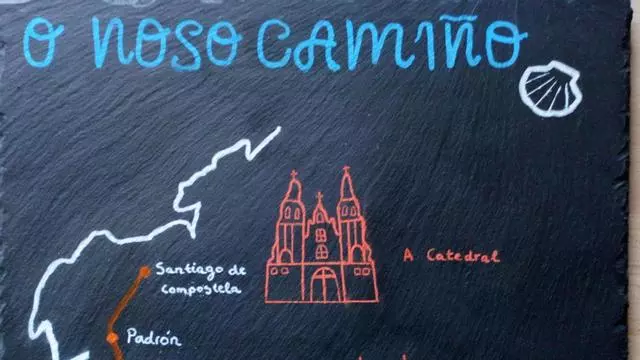 O NOSO CAMIÑO
A Catedral
Santiago de
Compostela
Padrón